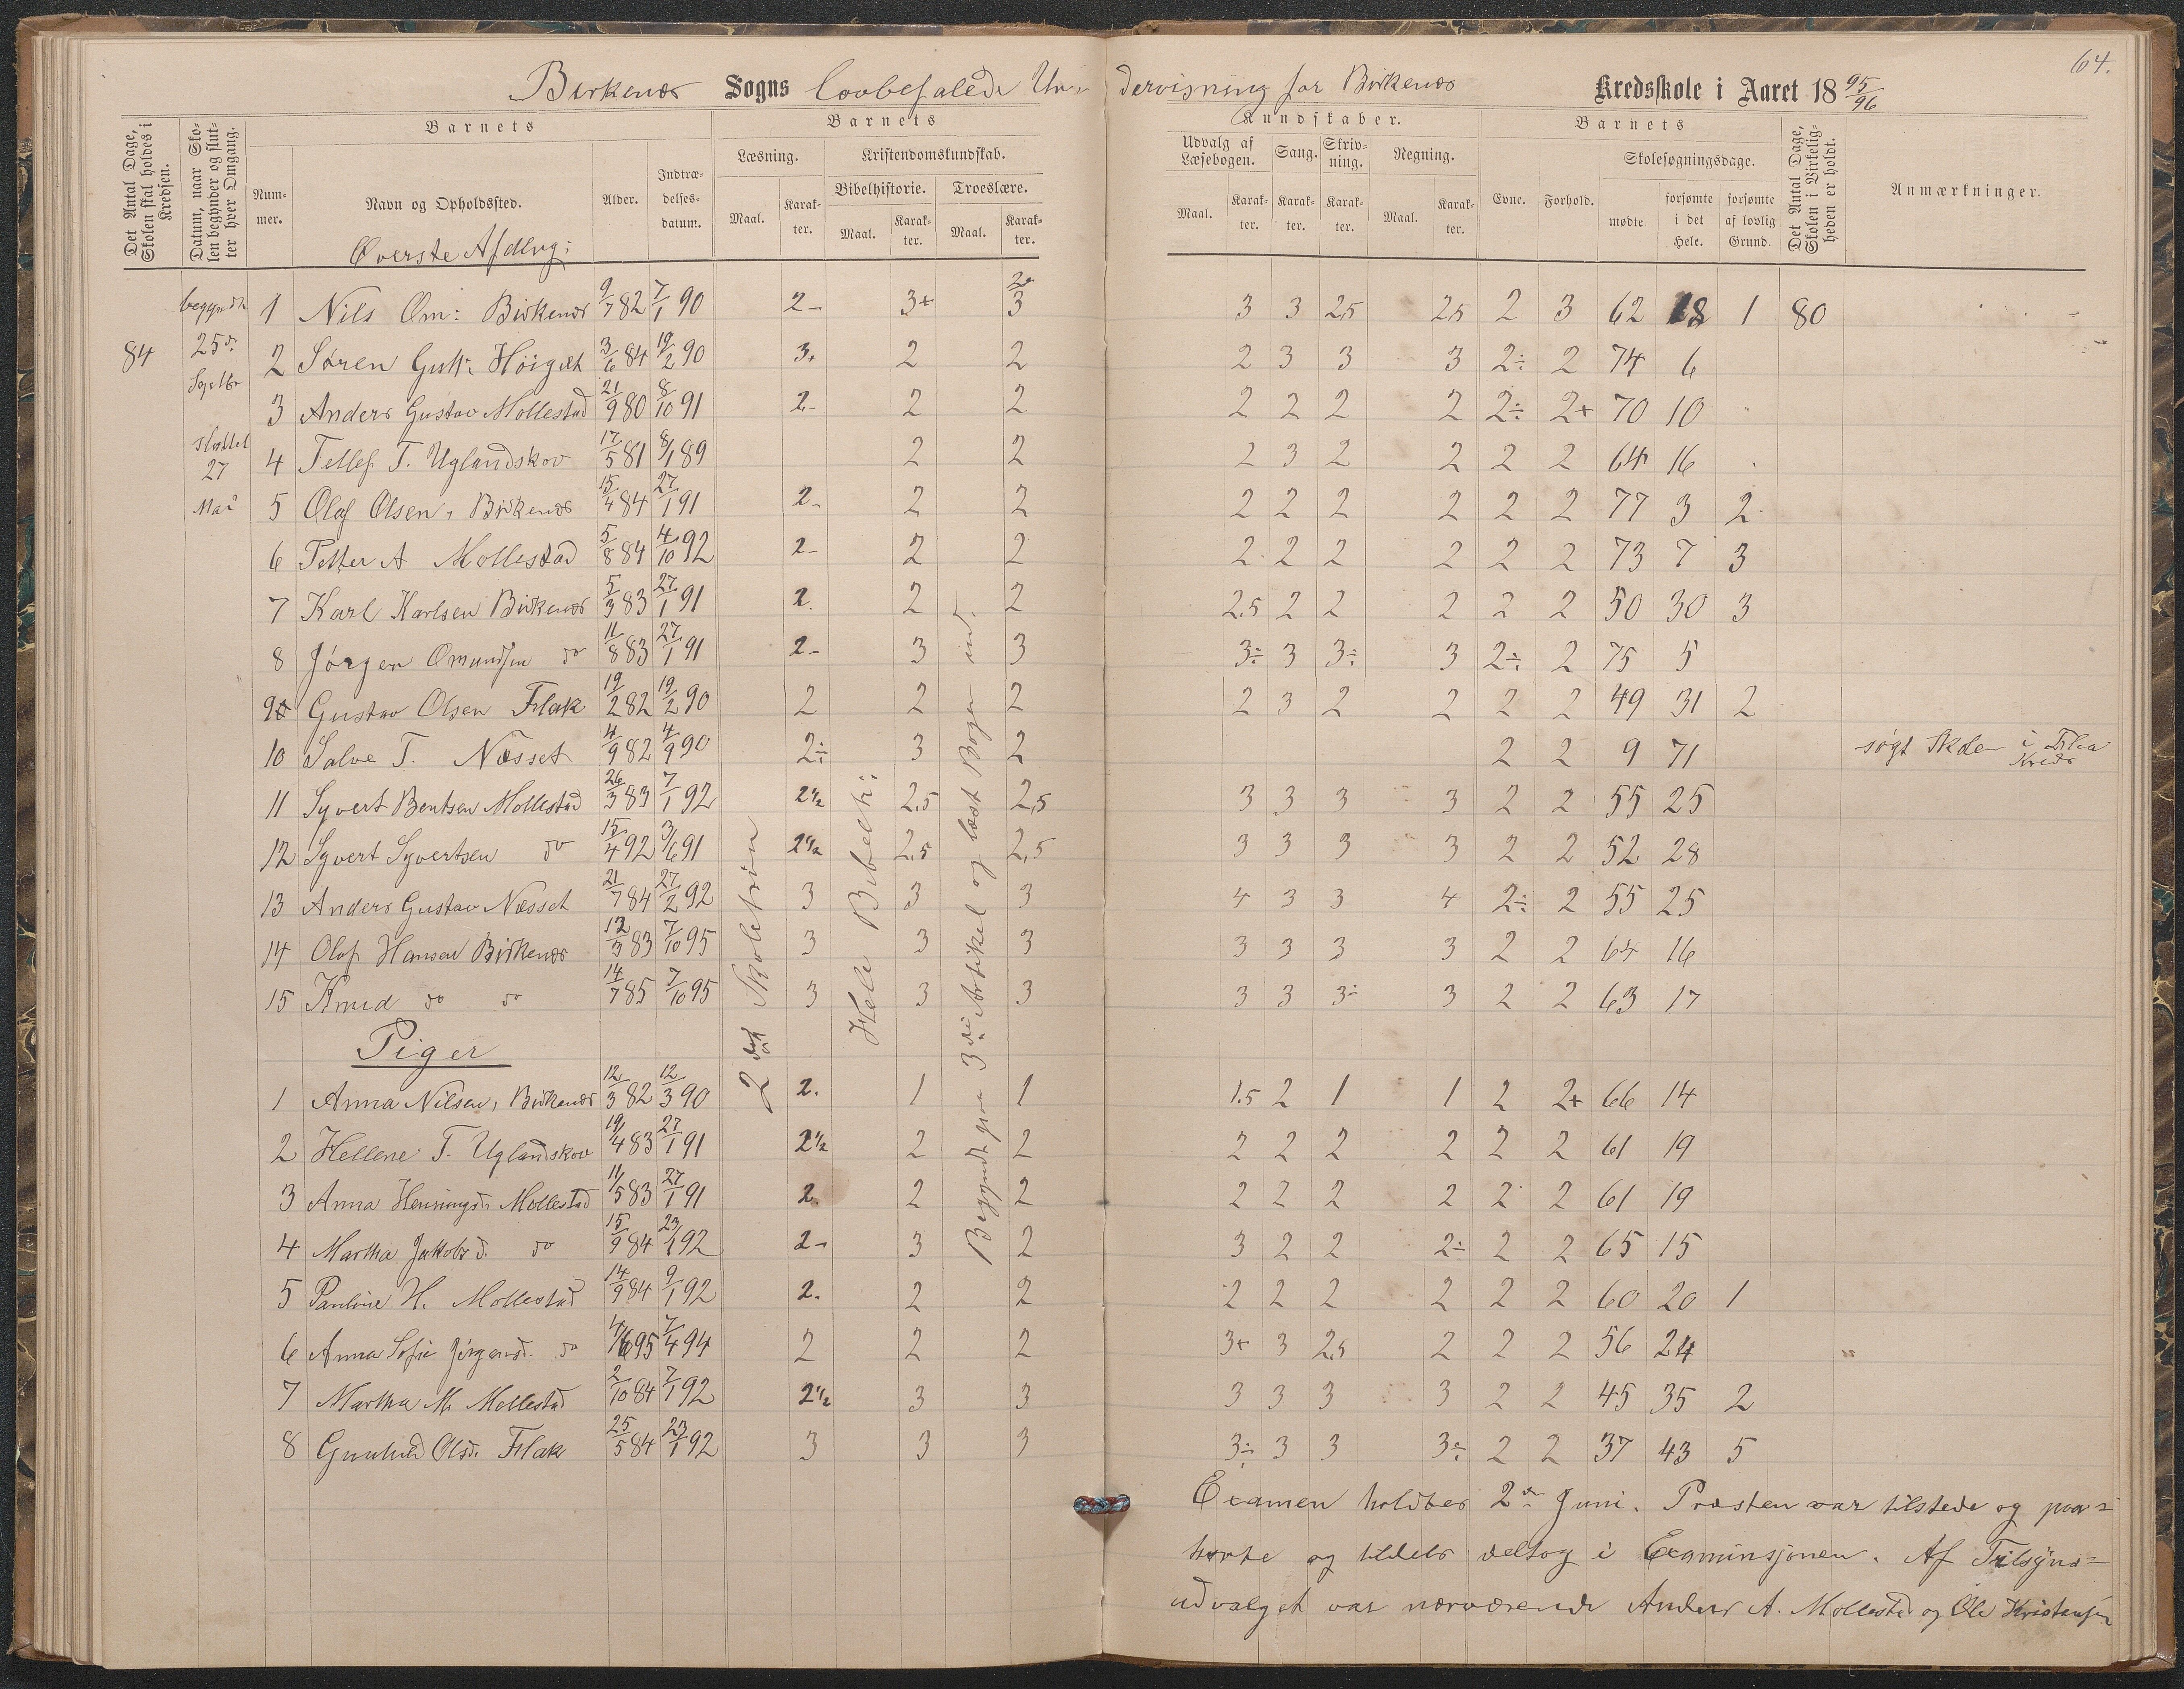 64.
Birkenæs Sogns lovbefalede Undervisning for Birkenæs Kredsskole i Aaret 18 95/96
Det Antal Dage, Skolen skal holdes i Kredsen.
Datum, naar Skolen begynder og slutter hver Omgang.
Barnets
Nummer.
Navn og Opholdssted.
Alder.
Indtrædelsesdatum.
Barnets
Læsning.
Maal.
Karakter.
Kristendomskundskab.
Bibelhistorie.
Maal.
Karakter.
Troeslære.
Maal.
Karakter.
Kundskaber.
Udvalg af Læsebogen.
Maal.
Karakter.
Sang.
Karakter.
Skrivning.
Karakter.
Regning.
Maal.
Karakter.
Barnets
Evne.
Forhold.
Skolesøgningsdage.
mødte
forsømte i det Hele.
forsømte af lovlig Grund.
Det Antal Dage, Skolen i Virkeligheden er holdt.
Anmærkninger.
Øverste Afdlng:
84
begyndte
25de
Septbr
sluttet
27
Mai
1 Nils Om: Birkenæs 9/7 82 7/1 90 2- 3+ 3 3 3 2,5 2,5 2 3 62 18 1 80
2 Søren Gutt: 3/6 84 19/2 90 3+ 2 2 2 3 3 3 2÷ 2 74 6
3 Anders Gustav Mollestad 21/9 80 8/10 91 2- 2 2 2 2 2 2 2÷ 2+ 70 10
4 Tellef T. Uglandskov 17/5 81 8/1 89 2 2 2 3 2 2 2 2 64 16
5 Olaf Olsen, Birkenæs 15/4 84 27/1 91 2- 2 2 2 2 2 2 2 2 77 3 2
6 Petter A Mollestad 5/8 84 4/10 92 2- 2 2 2 2 2 2 2 2 73 7 3
7 Karl Karlsen Birkenæs 5/3 83 27/1 91 2. 2 2 2.5 2 2 2 2 2 50 30 3
8 Jørgen Omundsen do 11/8 83 27/1 91 2- 3 3 3÷ 3 3÷ 3 2÷ 2 75 5
9 Gustav Olsen Flak 19/2 82 19/2 90 2 2 2 2 3 2 2 2 2 49 31 2
10 Salve T. Næsset 4/9 82 4/9 90 2÷ 3 2 2 2 9 71 søgt Skolen i Flaa Kreds
11 Syvert Bentsen Mollestad 26/3 83 7/1 92 2½ 2,5 2,5 3 3 3 3 2 2 55 25
12 Syvert Syvertsen do 15/4 92 3/6 91 2½ 2,5 2,5 3 3 3 3 2 2 52 28
13 Anders Gustav Næsset 21/7 84 27/2 92 3 3 3 4 3 3 4 2÷ 2 55 25
14 Olaf Hansen Birkenæs 12/3 83 7/10 95 3 3 3 3 3 3 3 2 2 64 16
15 Knud do do 14/7 85 7/10 95 3 3 3 3 3 3÷ 3 2 2 63 17
Piger
1 Anna Nilsen, Birkenæs 12/3 82 12/3 90 2. 1 1 1.5 2 1 1 2 2+ 66 14
2 Hellene T. Uglandskov 19/4 83 27/1 91 2½ 2 2 2 2 2 2 2 2 61 19
3 Anna Henningsd: Mollestad 11/5 83 27/1 91 2. 2 2 2 2 2 2 2 2 61 19
4 Martha Jakobsd. do 15/9 84 23/1 92 2- 3 2 3 2 2 2÷ 2 2 65 15
5 Pauline H. Mollestad 14/9 84 9/1 92 2. 2 2 2 2 2 2 2 2 60 20 1
6 Anna Sofie Jørgensd. do 4/6 95 7/4 94 2 2 2 3+ 3 2,5 2 2 2 56 24
7 Martha M. Mollestad 2/10 84 7/1 92 2½ 3 3 3 3 3 3 2 2 45 35 2
8 Gunhild Olsd. Flak 25/5 84 23/1 92 3 3 3 3÷ 3 3 3÷ 2 2 37 43 5
2det Skoletrin
Hele Bibelhi:
Begyndt paa 3die Artikel og læst Bogen ud.
Examen holdtes 2den Juni. Præsten var tilstede og paa=
hørte og tildels deltog i Examinsjonen. Af Tilsyns=
udvalget var nærværende Anders A. Mollestad og Ole Kristensen